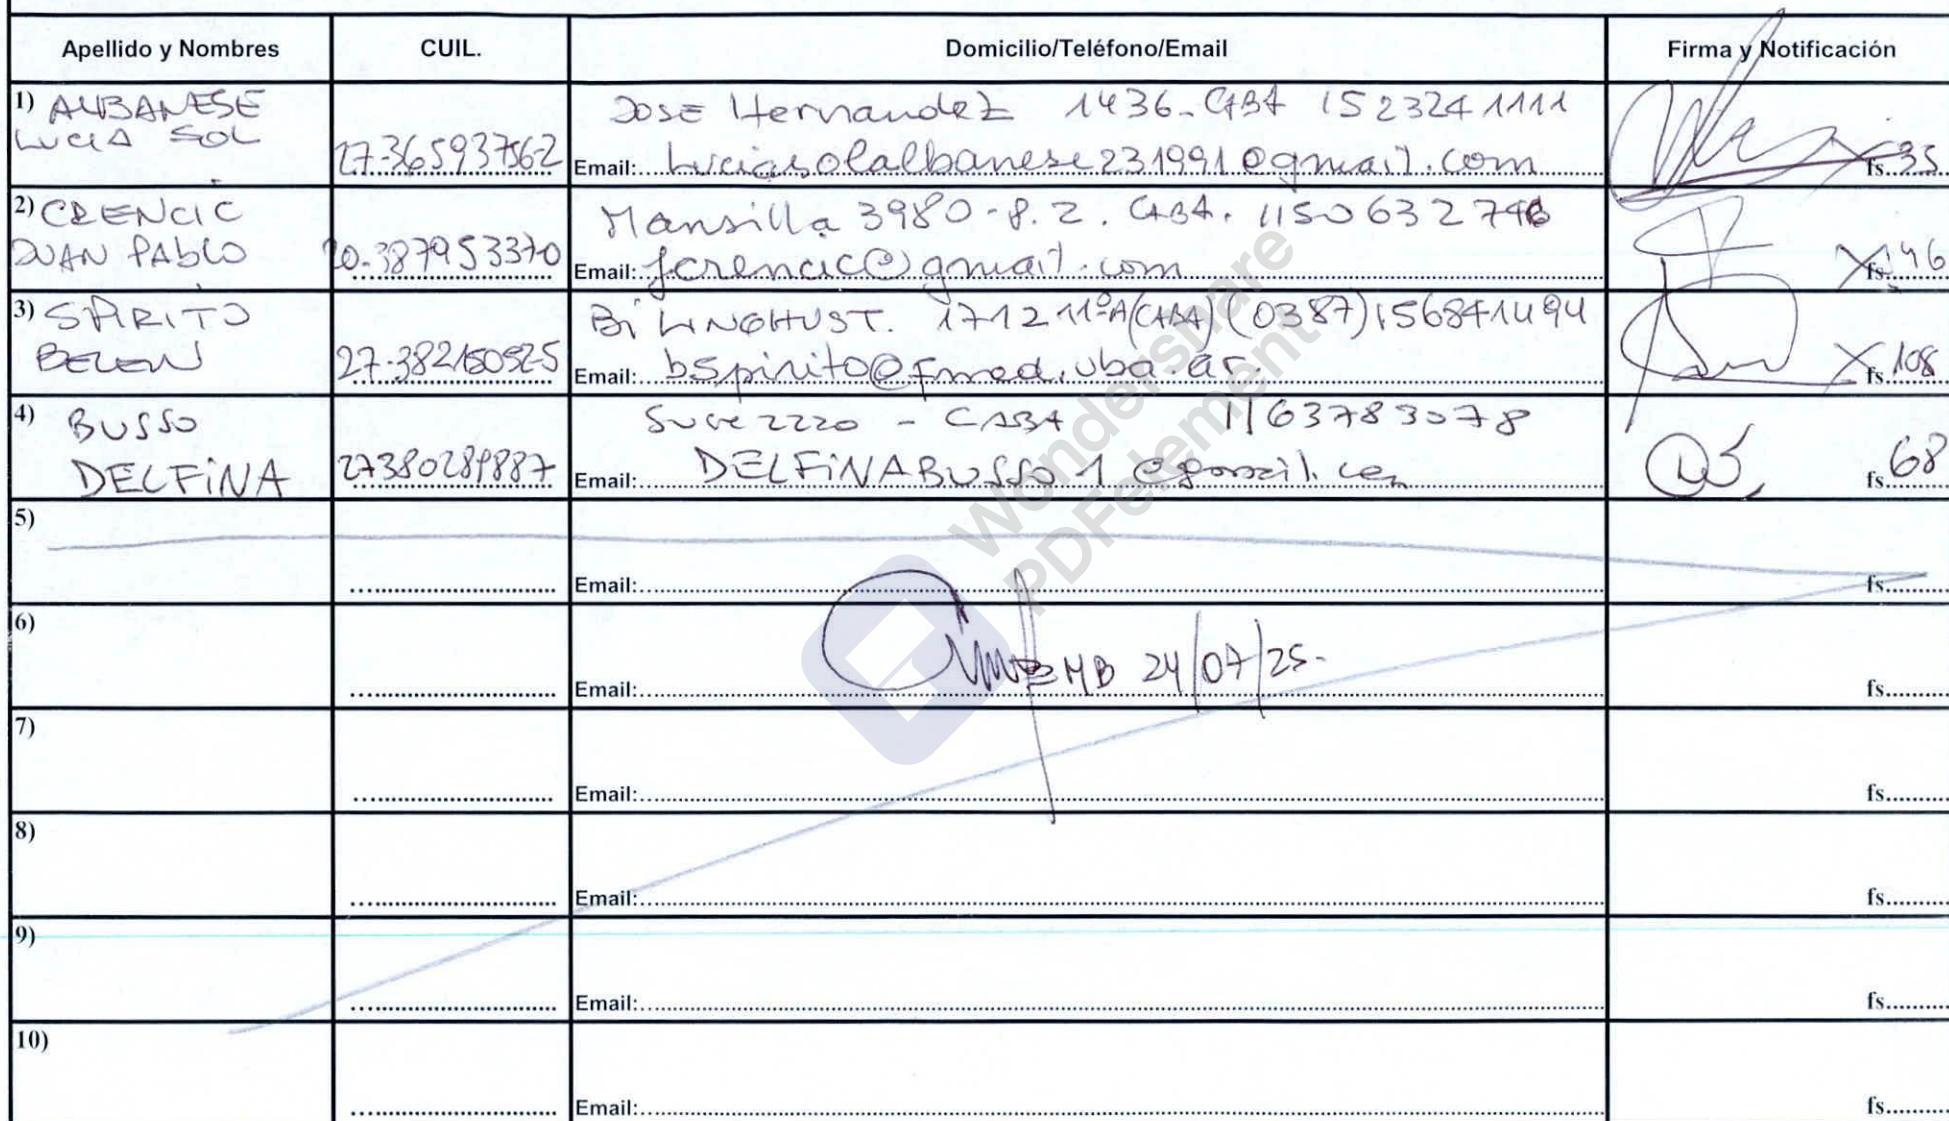 Apellido y Nombres CUIL. Domicilio/Teléfono/Email Firma y Notificación
1) ALBANESE LUCIA SOL 27-36593756-2 JOSE Hernandez 1436-CABA 1523241111
Email: luciasolalbanese231991@gmail.com fs. 35
2) CRENCIC JUAN PABLO 20-387953370 Mansilla 3980-8.2. CABA.
Email: jcrencic@gmail.com fs. 146
3) SPIRITO BELEN BiLINGHUST. 1712 11ºA (CABA) (0387)156841494
Email: bspirito@fmed.uba.ar. fs. 108
4) BUSSO DELFiNA 27380289887 - CABA 1163783078
Email: DELFiNABUSSO1@gmail.com fs. 68
5)
Email: fs.
6)
MB 24/07/25-
Email: fs.
7)
Email: fs.
8)
Email: fs.
9)
Email: fs.
10)
Email: fs.
Wondershare
PDFelement